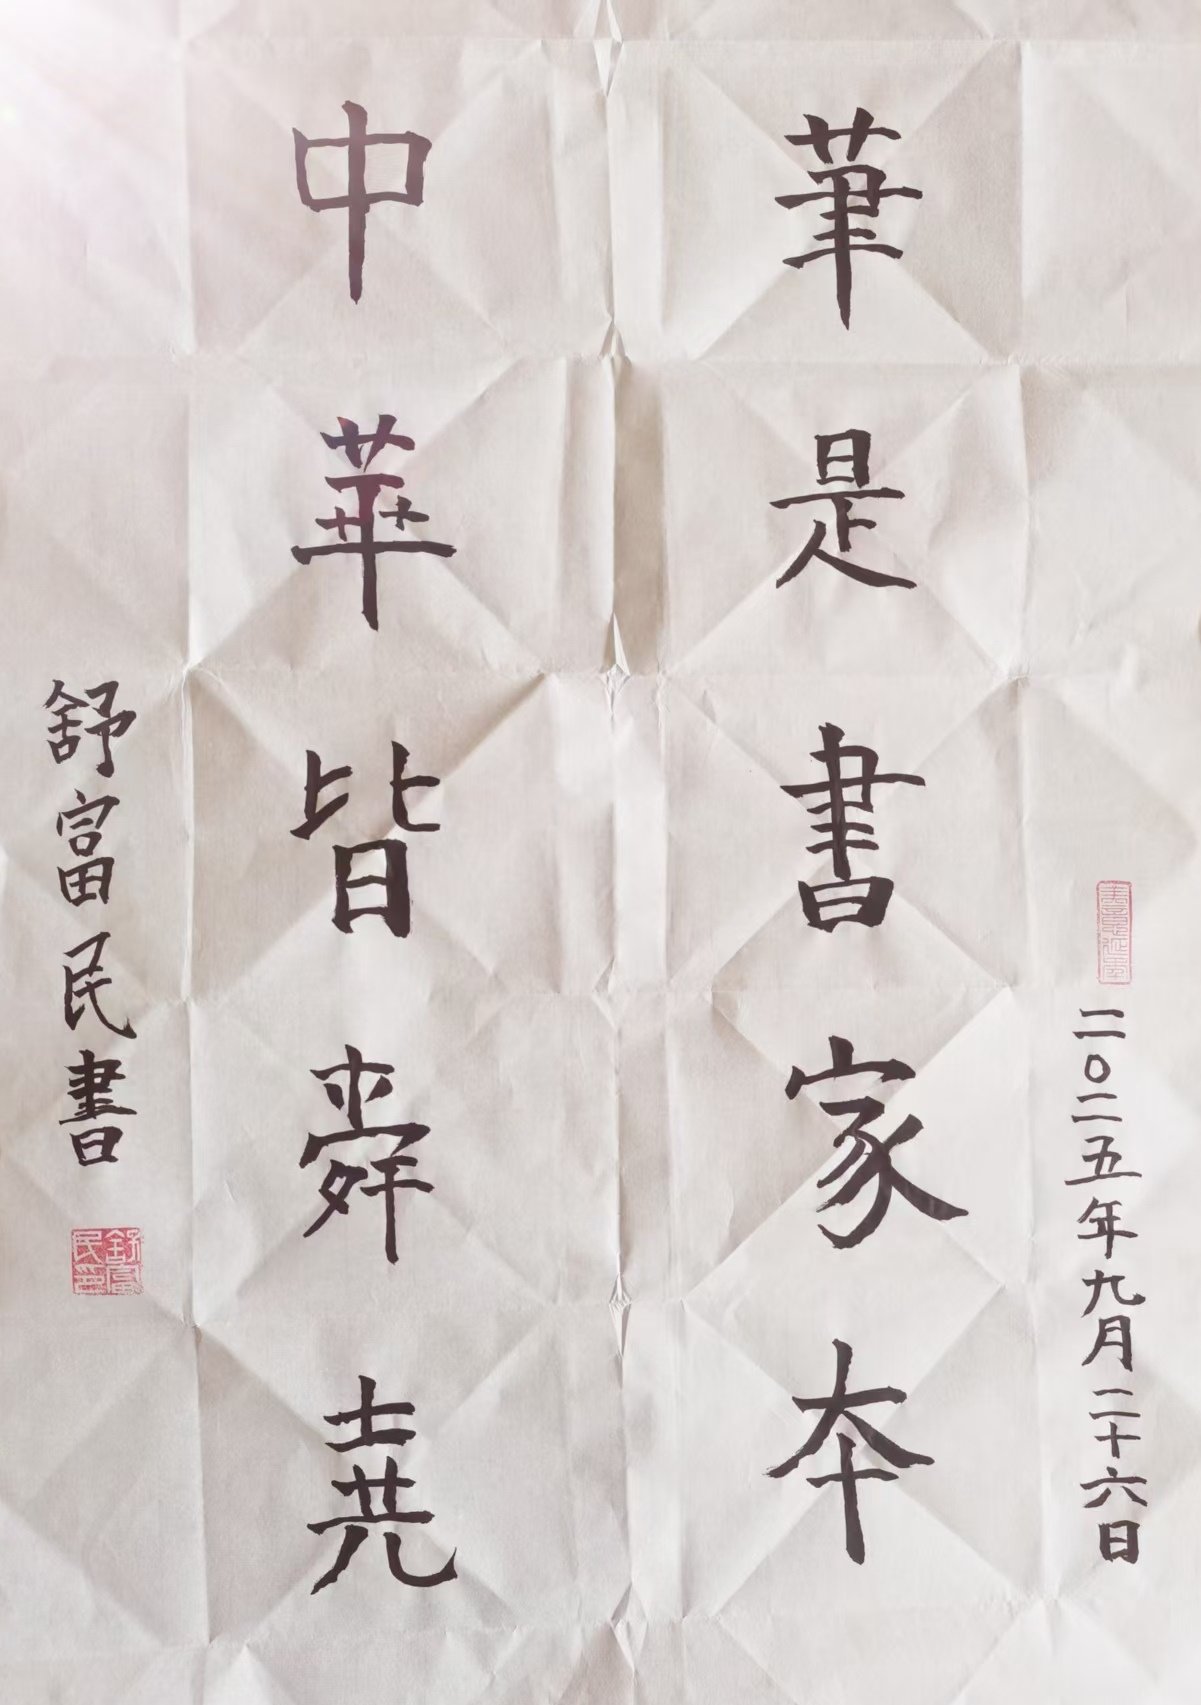 二〇二五年九月二十六日
筆是書家本
中華皆舜堯
舒富民書
舒富民印